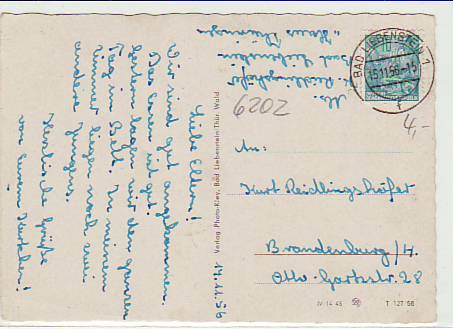 14.11.56
Liebe Eltern!
Wir sind gut angekommen.
Das Essen ist gut.
Gestern lagen wir den ganzen
Tag im Bett. In meinem
Zimmer liegen noch zwei
andere Jungens.
Herzliche Grüße
von Eurem Kurtchen!
Verlag Photo-Kiev, Bad Liebenstein-Thür. Wald
Bad Liebenstein
"Haus Thüringen"
6202
BAD LIEBENSTEIN 1
15.11.56-15
10
4,-
An:
Kurt Reidlingshöfer
Brandenburg/H.
Otto-Gartzstr. 28
IV 14 45
T 127 56